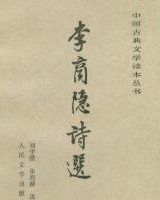 中国古典文学读本丛书
李商隐詩選
刘学锴 余恕诚 选
人民文学出版